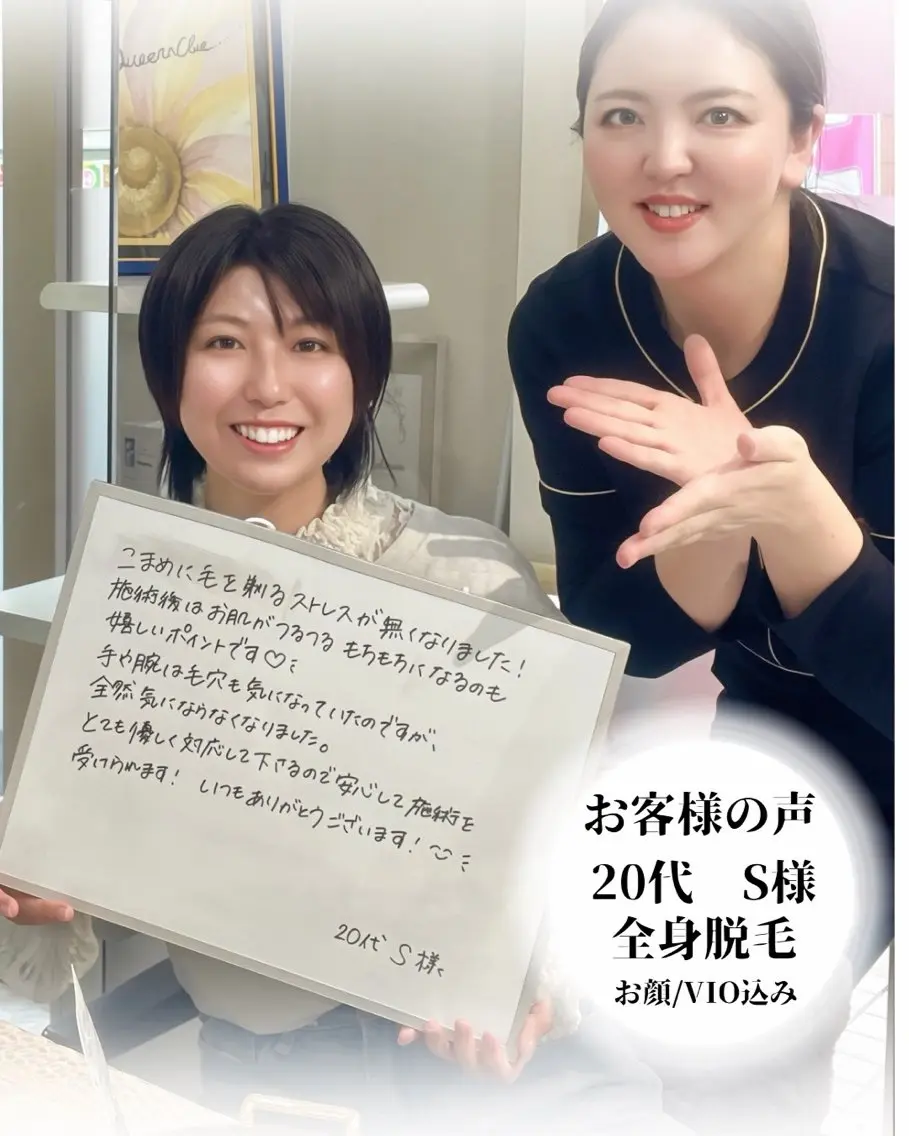 こまめに毛を剃るストレスが無くなりました!
施術後はお肌がつるつるもちもちになるのも
嬉しいポイントです♡
手や腕は毛穴も気になっていたのですが、
全然気にならなくなりました。
とても優しく対応して下さるので安心して施術を
受けられます! いつもありがとうございます!
20代 S様
お客様の声
20代 S様
全身脱毛
お顔/VIO込み